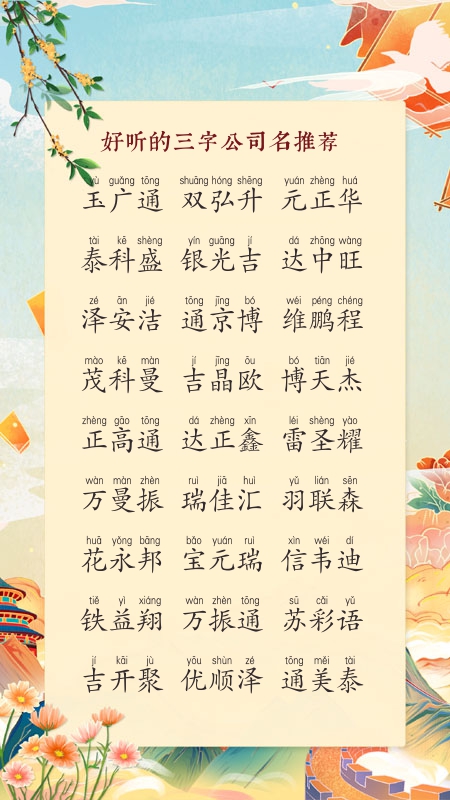 好听的三字公司名推荐
yù guǎng tōng shuāng hóng shēng yuán zhèng huá
玉广通 双弘升 元正华
tài kē shèng yín guāng jí dá zhōng wàng
泰科盛 银光吉 达中旺
zé ān jié tōng jīng bó wéi péng chéng
泽安洁 通京博 维鹏程
mào kē màn jí jīng ōu bó tiān jié
茂科曼 吉晶欧 博天杰
zhèng gāo tōng dá zhèng xīn léi shèng yào
正高通 达正鑫 雷圣耀
wàn màn zhèn ruì jiā huì yǔ lián sēn
万曼振 瑞佳汇 羽联森
huā yǒng bāng bǎo yuán ruì xìn wéi dí
花永邦 宝元瑞 信韦迪
tiě yì xiáng wàn zhèn tōng sū cǎi yǔ
铁益翔 万振通 苏彩语
jí kāi jù yōu shùn zé tōng měi tài
吉开聚 优顺泽 通美泰